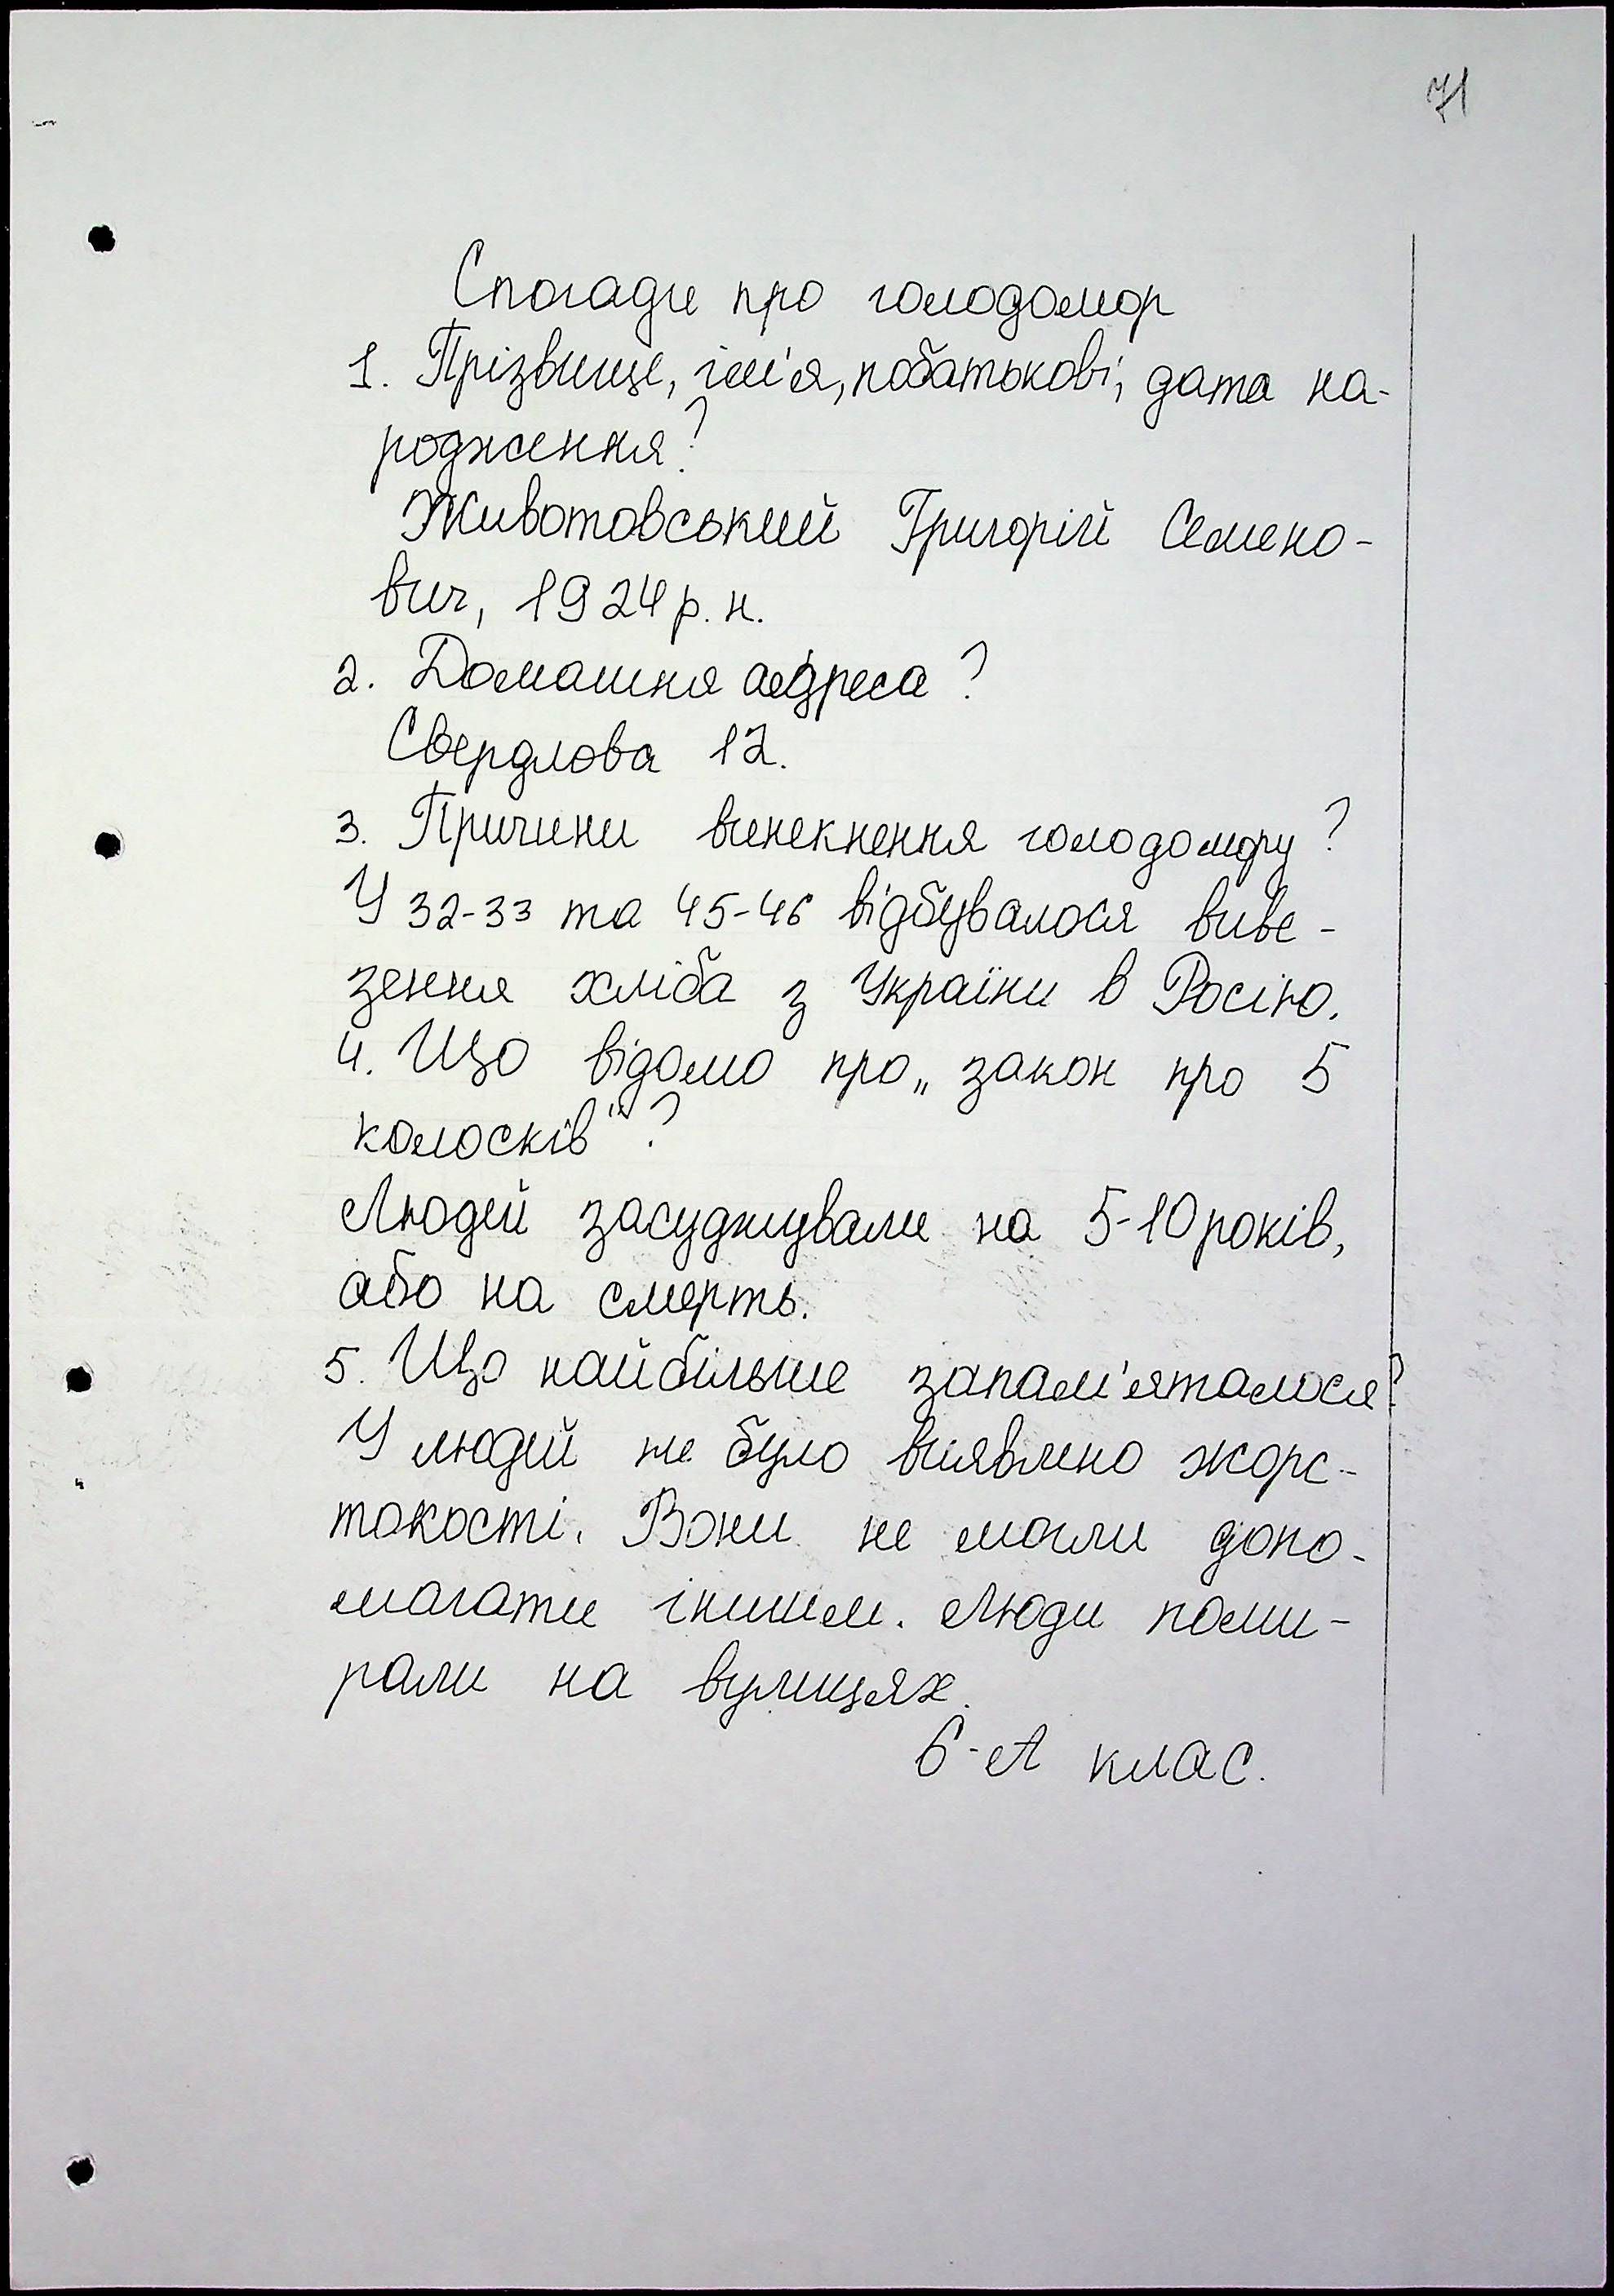 71
Спогади про голодомор
1. Прізвище, ім'я, побатькові, дата на-
родження?
Животовський Григорій Семено-
вич, 1924 р. н.
2. Домашня адреса?
Свердлова 12.
3. Причини винекнення голодомору?
У 32-33 та 45-46 відбувалося виве-
зення хліба з України в Росію.
4. Що відомо про „закон про 5
колосків"?
Людей засуджували на 5-10 років,
або на смерть.
5. Що найбільше запам'яталося?
У людей не було виявлено жорс-
токості. Вони не могли допо-
магати іншим. Люди поми-
рали на вулицях.
6-А клас.